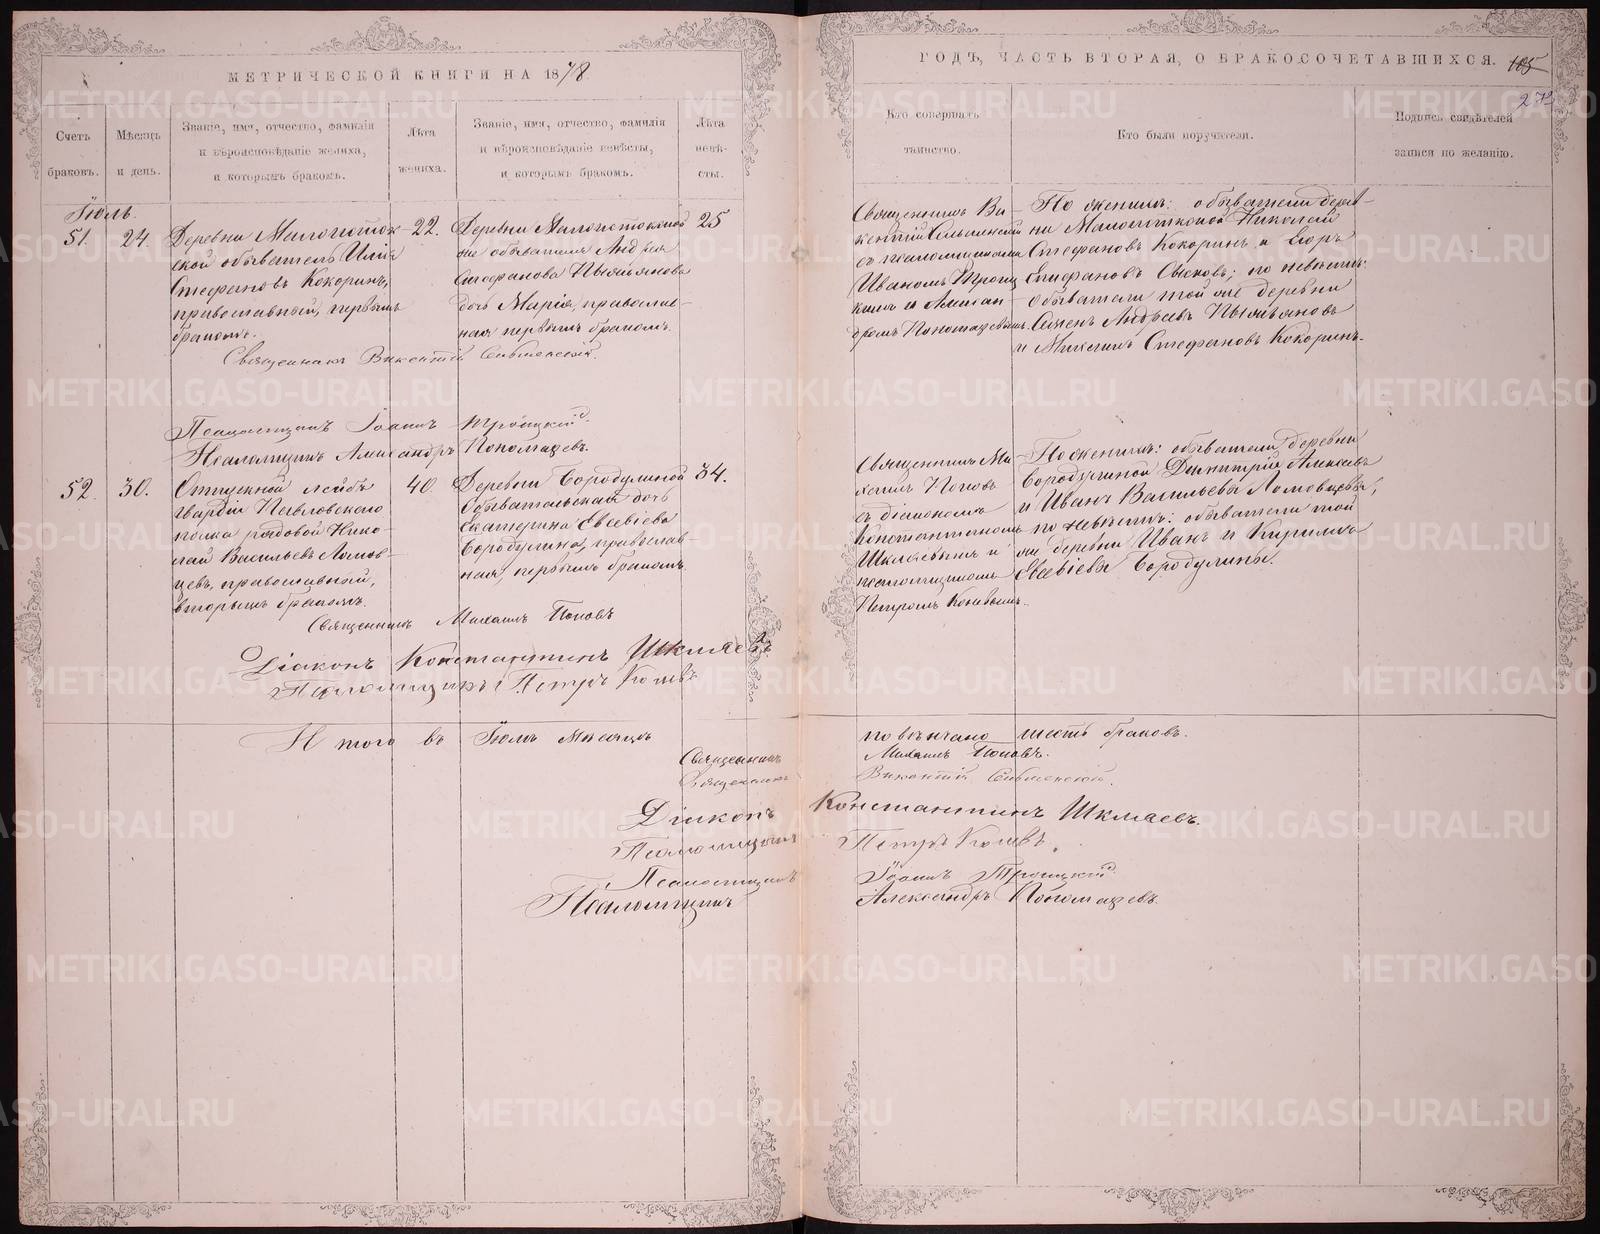 МЕТРИЧЕСКОЙ КНИГИ НА 1878
Счетъ браковъ.
Мѣсяцъ и день.
Званіе, имя, отчество, фамилія
и вѣроисповѣданіе жениха,
и которымъ бракомъ.
Лѣта жениха.
Званіе, имя, отчество, фамилія
и вѣроисповѣданіе невѣсты,
и которымъ бракомъ.
Лѣта невѣ-
сты.
Іюль.
51. 24.
Деревни Малопоток-
ской обыватель Илія
Стефановъ Кокоринъ,
православный, первымъ
бракомъ.
22.
Деревни Малопотокской
же обывателя Андрея
Стефанова
дочь Марія, православ-
ная первымъ бракомъ.
25
Священникъ Викентій Сельменскій.
Псаломщикъ Іоаннъ Троицкій.
Псаломщикъ Александръ Пономаревъ.
52. 30.
Отпускной лейбъ
гвардіи Павловскаго
полка рядовой Нико-
лай Васильевъ Ломов-
цевъ, православный,
вторымъ бракомъ.
40.
Деревни Бородулиной
обывательская дочь
Екатерина Евсевіева
Бородулина, православ-
ная, первымъ бракомъ.
34.
Священникъ Михаилъ Поповъ
Діаконъ Константинъ Шкляевъ.
Псаломщикъ Петръ
Итого въ Іюлѣ мѣсяцѣ
Священникъ
Священникъ
Діаконъ
Псаломщикъ
Псаломщикъ
Псаломщикъ
ГОДЪ, ЧАСТЬ ВТОРАЯ, О БРАКОСОЧЕТАВШИХСЯ.
105
Кто совершалъ
таинство.
Кто были поручители.
Подпись свидѣтелей
записи по желанію.
Священникъ Ви-
кентій Сельменскій
съ псаломщиками
Иваномъ Троиц-
кимъ и Алексан-
дромъ Пономаревымъ.
По женихѣ: обыватели дерев-
ни Малопотокской Николай
Стефановъ Кокоринъ и Егоръ
Стефановъ; по невѣстѣ:
обыватели той же деревни
Семенъ Андреевъ
и Михаилъ Стефановъ Кокоринъ.
Священникъ Ми-
хаилъ Поповъ
съ діакономъ
Константиномъ
Шкляевымъ и
псаломщикомъ
Петромъ
По женихѣ: обыватели деревни
Бородулиной Димитрій Алексѣевъ
и Иванъ Васильевъ Ломовцевы,
по невѣстѣ: обыватели той
же деревни Иванъ и Кириллъ
Евсевіевы Бородулины.
повѣнчано шесть браковъ.
Михаилъ Поповъ.
Викентій Сельменскій.
Константинъ Шкляевъ.
Петръ
Іоаннъ Троицкій
Александръ Пономаревъ.
METRIKI.GASO-URAL.RU